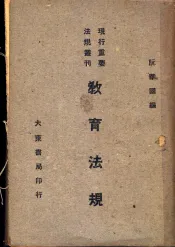 阮毅成編
現行重要
法規叢刊
教育法規
大東書局印行